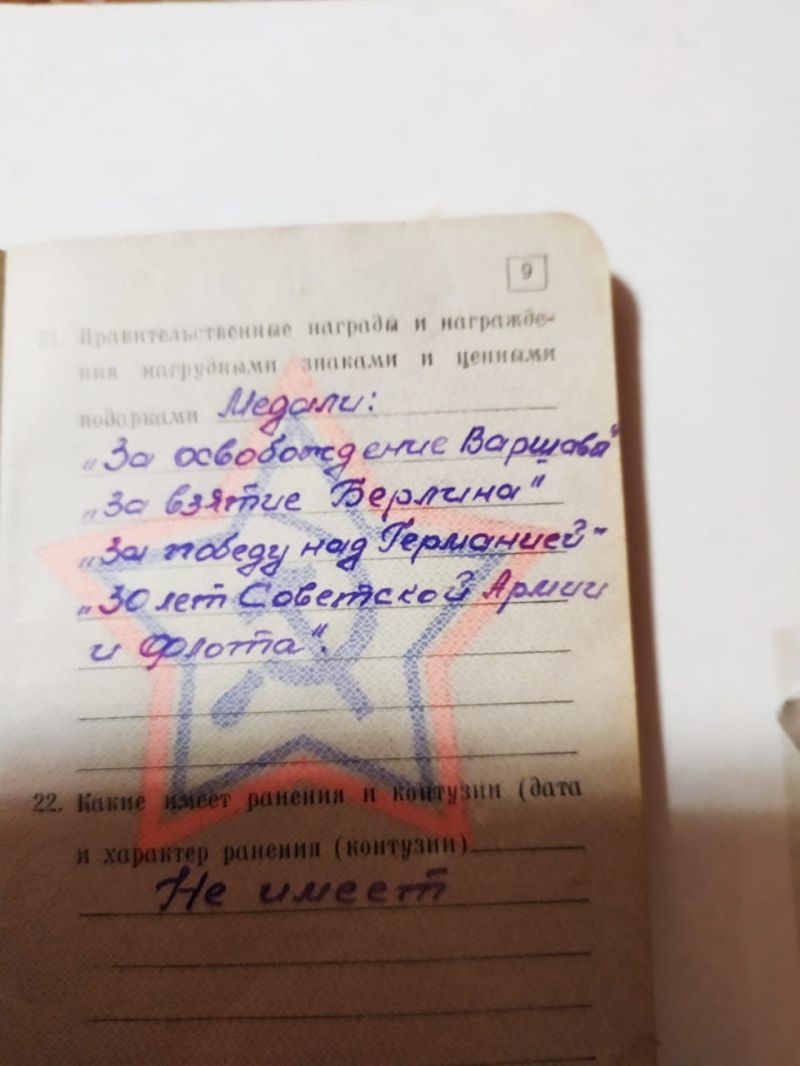 9
21. Правительственные награды и награжде-
ния нагрудными знаками и ценными
подарками Медали:
„За освобождение Варшавы"
„За взятие Берлина"
„За победу над Германией"
„30 лет Советской Армии
и Флота".
22. Какие имеет ранения и контузии (дата
и характер ранения (контузии)
Не имеет